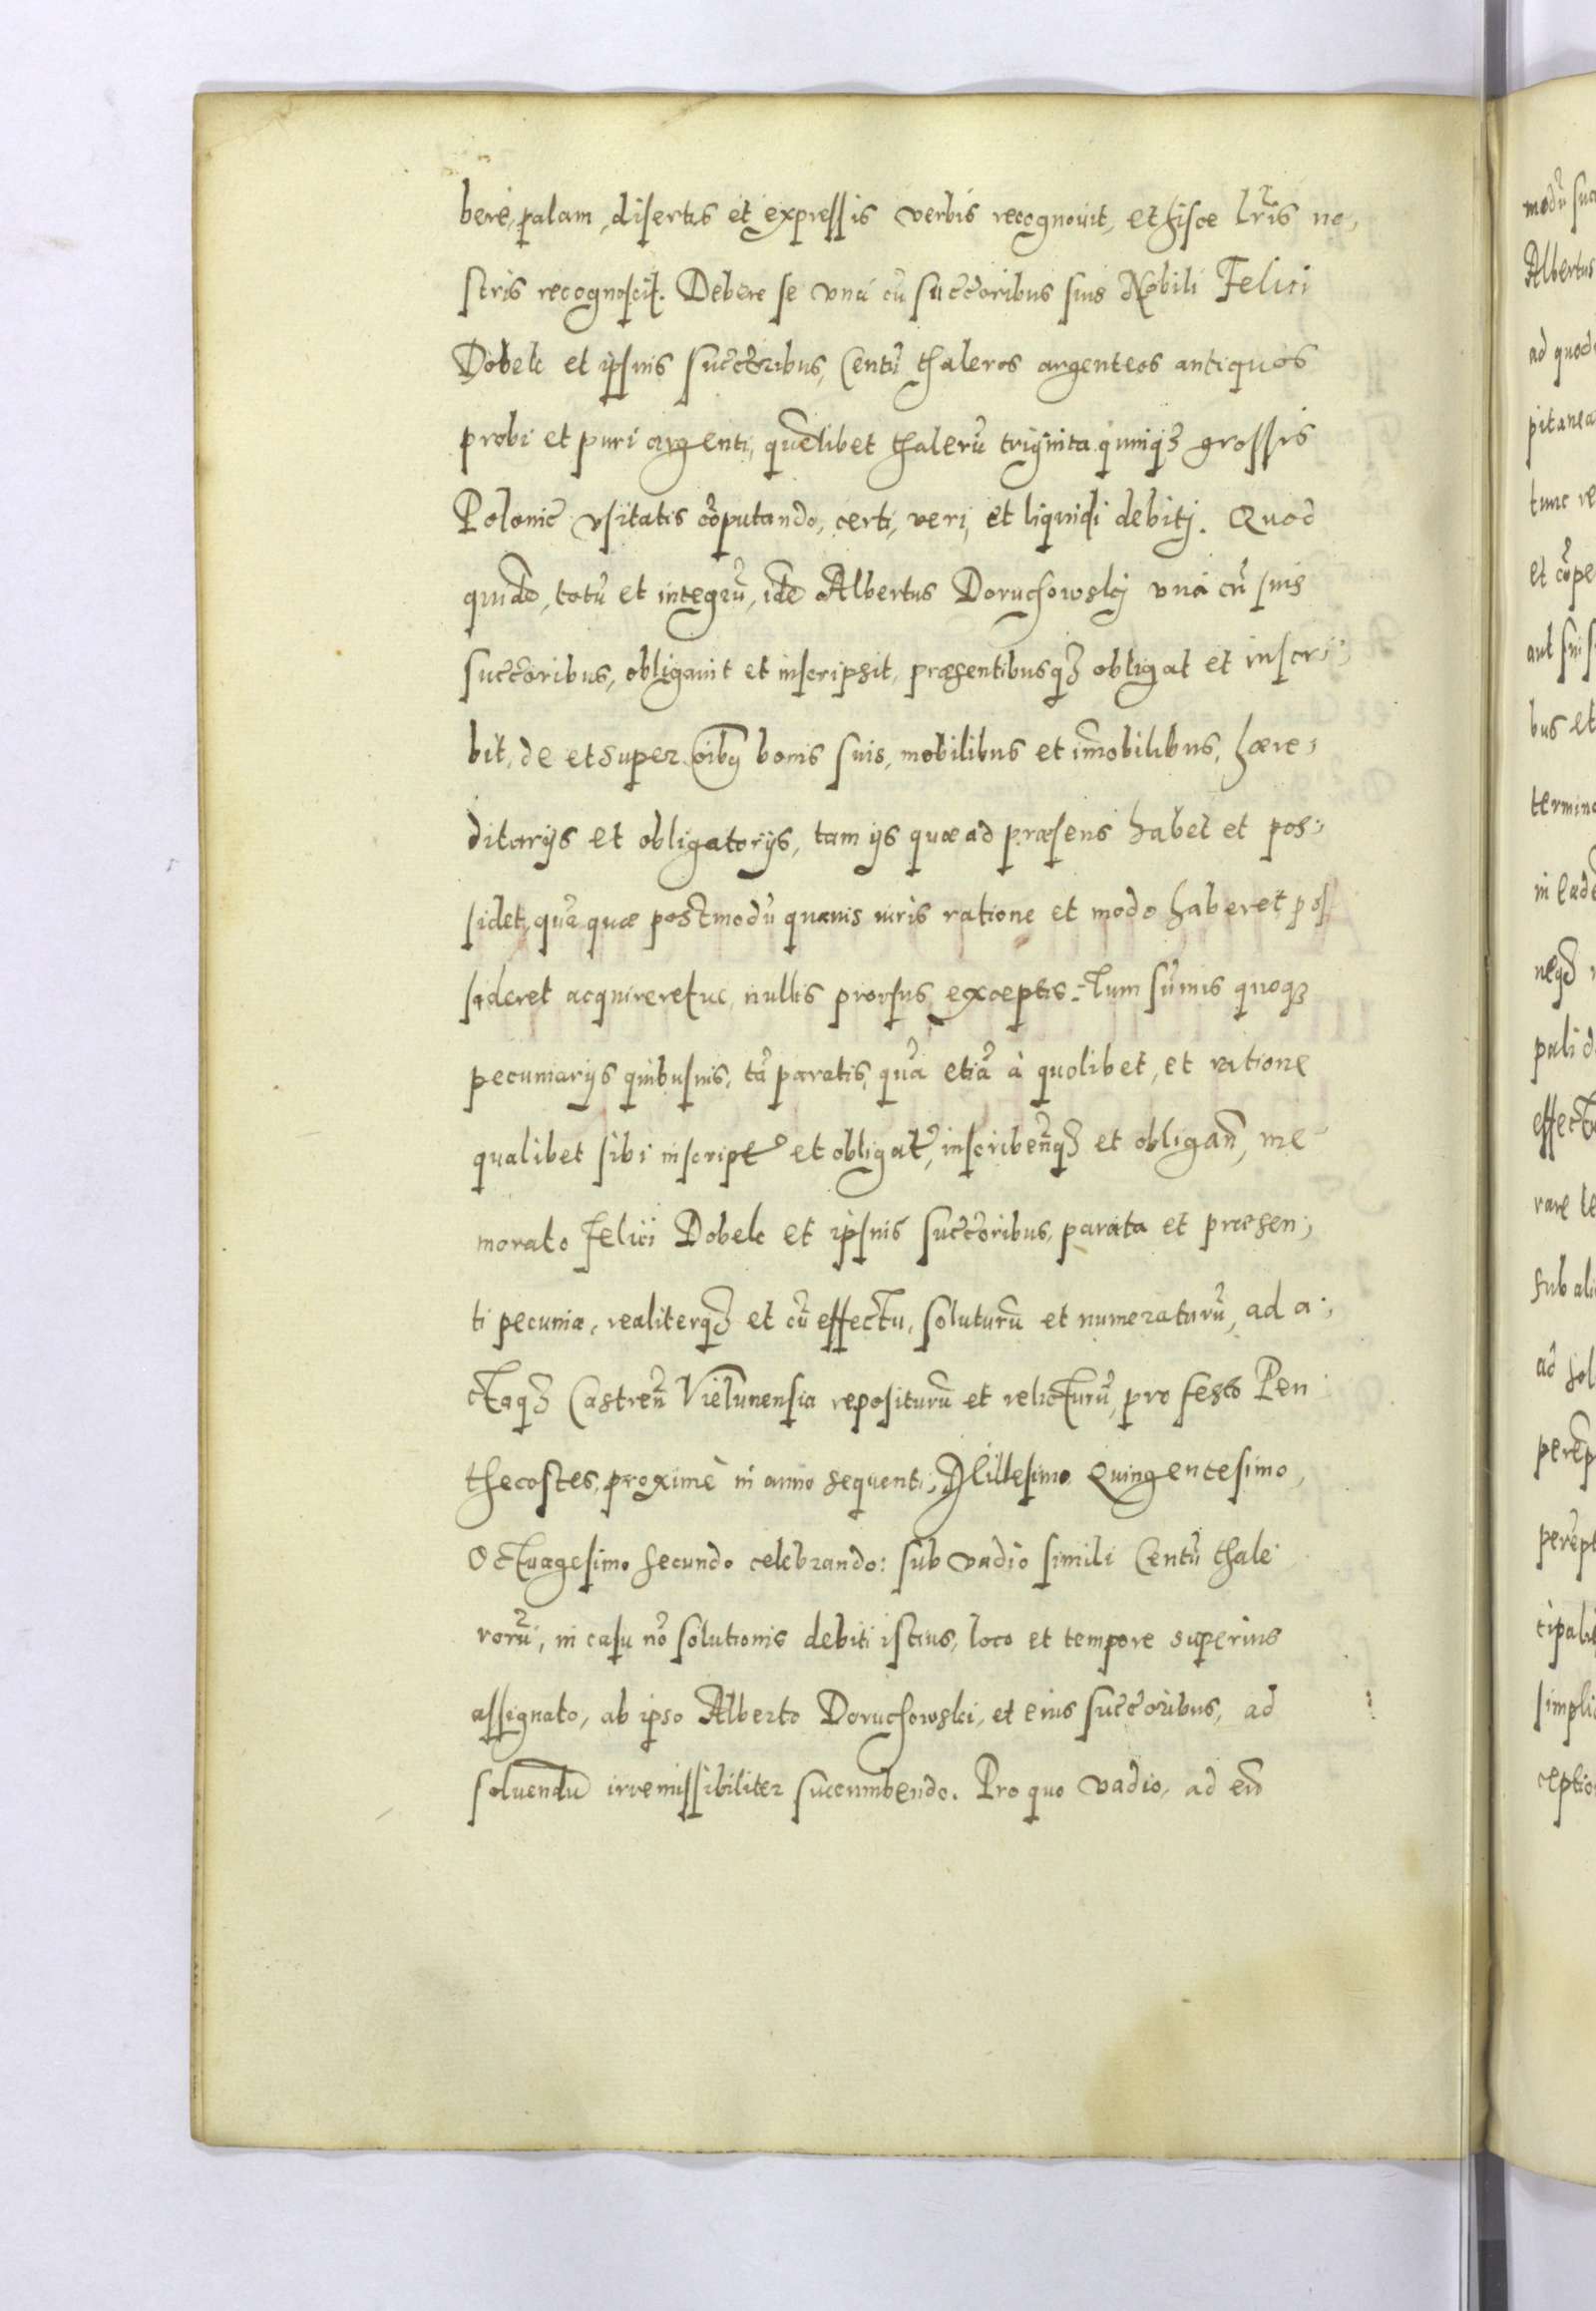 bere, palam, disertis et expressis verbis recognovit, et hisce lr̃is no,
stris recognoscit. Debere se vná cũ succõribus suis Nobili Felici
Dobek et ipsius succtõribus, Centũ thaleros argenteos antiquos
probi et puri argenti, quẽlibet thalerũ triginta quinq₃ grossis
Polonic̃ vsitatis cõputando, certi, veri, et liquidi debitj. Quod
quidẽ, totũ et integrũ, idẽ Albertus Doruchowskj vná cũ suis
succõribus, obligauit et inscripsit, præsentibusq₃ obligat et inscri-
bit, de et super oĩbus bonis suis, mobilibus et im̃obilibus, hære,
ditarijs et obligatorijs, tam ijs quæ ad præsens habet et pos,
sidet, quã quæ postmodũ quamuis iuris ratione et modo haberet pos
sideret acquireretue, nullis prorsus exceptis. Tum sum̃is quoq₃
pecuniarijs quibusuis, tã paratis, quã etiã à quolibet, et ratione
qualibet sibi inscript̃ et obligat̃, inscribeñq₃ et obligañ, me
morato Felici Dobek et ipsius succõribus, parata et præsen,
ti pecunia, realiterq₃ et cũ effectu, soluturũ et numeraturũ, ad a,
ctaq₃ Castreñ Vielunensia repositurũ et relicturũ, pro festo Pen
thecostes, proximè in anno sequenti, Millesimo Quingentesimo,
Octuagesimo secundo celebrando: sub vadio simili Centũ thale
rorũ, in casu nõ solutionis debiti istius, loco et tempore superius
assignato, ab ipso Alberto Doruchowski, et eius succõribus, ad
soluendũ irremissibiliter succumbendo. Pro quo vadio, ad eũ
modũ
Albertus